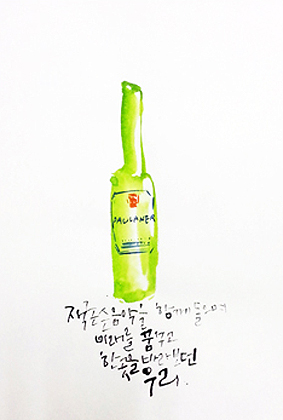 PAULANER
재즈음악을 함께 들으며
미래를 품고
한곳을 바라보던
우리.